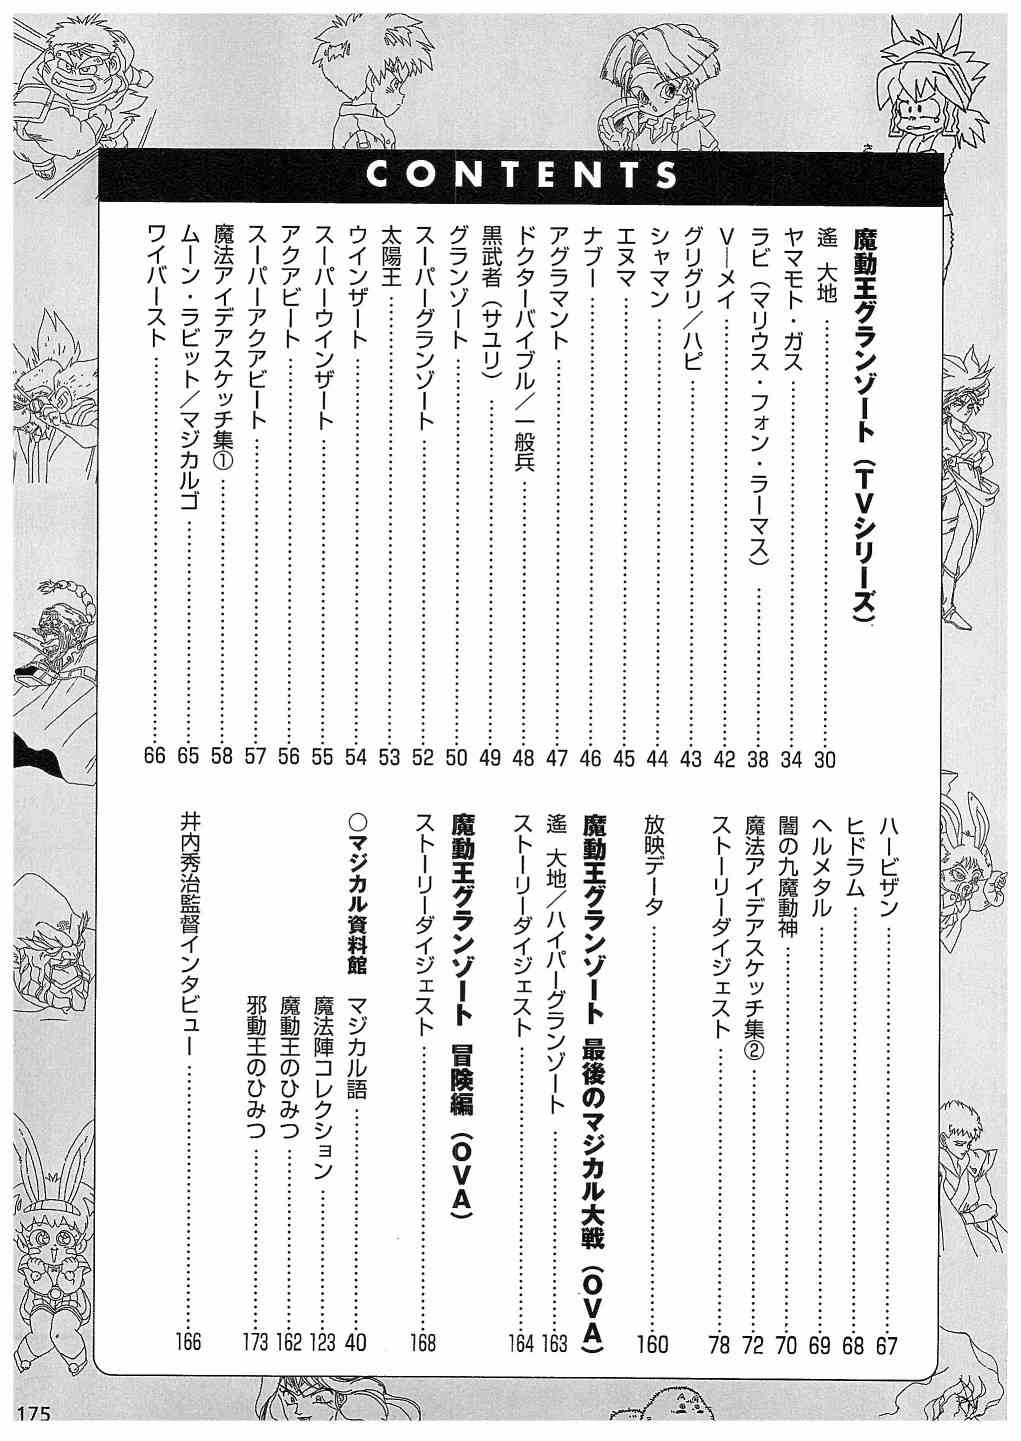 CONTENTS
魔動王グランゾート(TVシリーズ)
遙 大地 30
ヤマモト・ガス 34
ラビ(マリウス・フォン・ラーマス) 38
V―メイ 42
グリグリ/ハピ 43
シャマン 44
エヌマ 45
ナブー 46
アグラマント 47
ドクターバイブル/一般兵 48
黒武者(サユリ) 49
グランゾート 50
スーパーグランゾート 52
太陽王 53
ウインザート 54
スーパーウインザート 55
アクアビート 56
スーパーアクアビート 57
魔法アイデアスケッチ集① 58
ムーン・ラビット/マジカルゴ 65
ワイバースト 66
ハービザン 67
ヒドラム 68
ヘルメタル 69
闇の九魔動神 70
魔法アイデアスケッチ集② 72
ストーリーダイジェスト 78
放映データ 160
魔動王グランゾート 最後のマジカル大戦(OVA)
遙 大地/ハイパーグランゾート 163
ストーリーダイジェスト 164
魔動王グランゾート 冒険編(OVA)
ストーリーダイジェスト 168
○マジカル資料館 マジカル語 40
魔法陣コレクション 123
魔動王のひみつ 162
邪動王のひみつ 173
井内秀治監督インタビュー 166
175